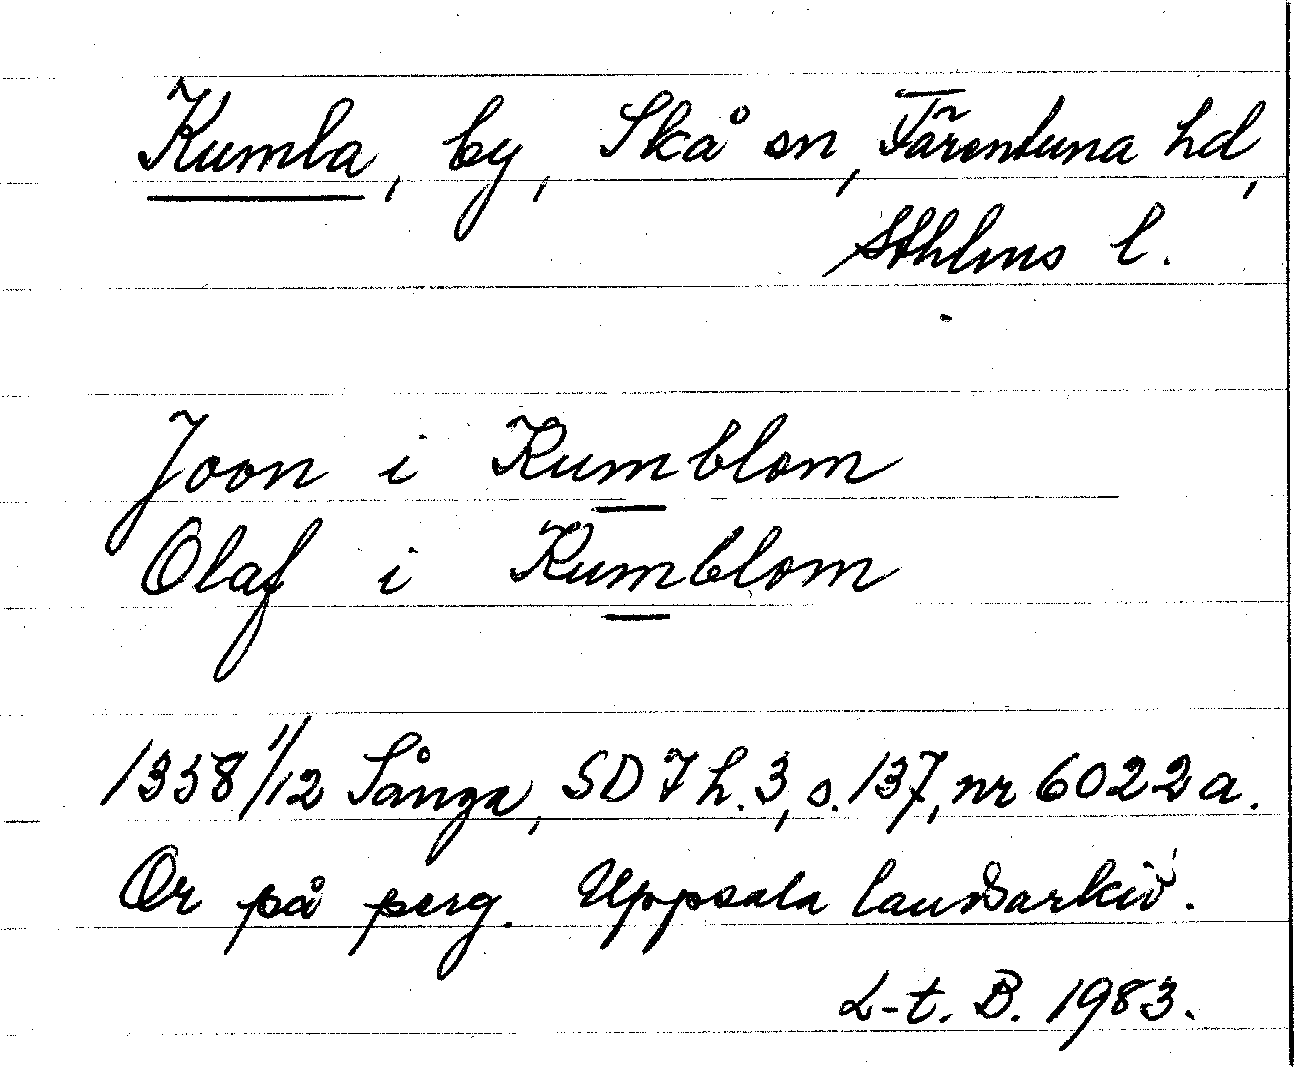 Kumla, by, Skå sn, Färentuna hd,
Sthlms l.
Joon i Kumblom
Olaf i Kumblom
1358 1/12 Sånga, SD 7 h. 3, s. 137, nr 6022 a.
Or på perg. Uppsala landsarkiv.
L-t. B. 1983.